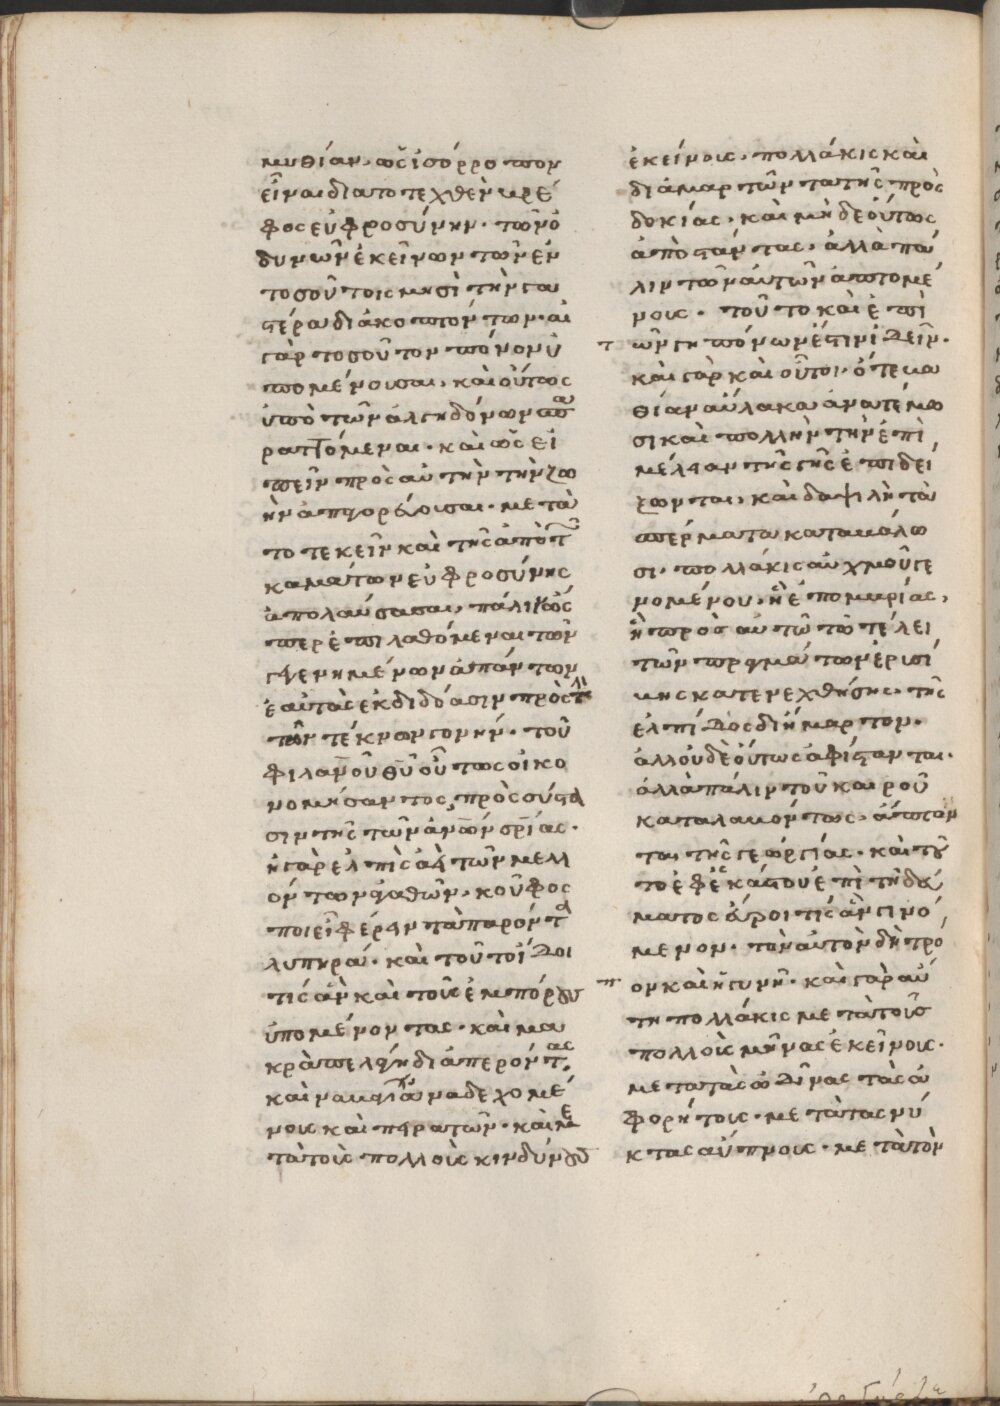 μυθίαν, ὡς ἰσόρροπον
εἶναι διὰ τὸ τεχθὲν βρέ
φος εὐφροσύνην. τῶν ὀ
δυνῶν ἐκείνων τῶν ἐν
τοσούτοις μησὶ τὴν γα
στέρα διακοπτόντων. αἱ
γὰρ τοσοῦτον πόνον ὑ
πομένουσαι, καὶ οὕτως
ὑπὸ τῶν ἀλγηδόνων σπα
ραττόμεναι. καὶ ὡς εἰ
πεῖν πρὸς αὐτὴν τὴν ζω
ὴν ἀπαγορεύουσαι. μετὰ
τὸ τεκεῖν καὶ τῆς ἀπὸ τῶν
καμάτων εὐφροσύνης
ἀπολαύσασαι, πάλιν ὥσ
περ ἐπιλαθόμεναι τῶν
γεγενημένων ἁπάντων
ἑαυτὰς ἐκδιδόασιν πρὸς τὴν
τῶν τέκνων γονήν. τοῦ
φιλανου θυ οὕτως οἰκο
νομήσαντος πρὸς σύστα
σιν τῆς τῶν ἀνων σριας.
ἡ γὰρ ἐλπὶς ἀεὶ τῶν μελλ
όντων ἀγαθῶν. κούφως
ποιεῖ φέρειν τὰ παρόντα
λυπηρά. καὶ τοῦτο ἴδοι
τίς ἂν καὶ τοὺς ἐμπόρους
ὑπομένοντας. καὶ μα
κρὰ πελάγη διαπερόντας.
καὶ ναυάγια ἀναδεχομέ
νοις καὶ πειρατῶν. καὶ με
τὰ τοὺς πολλοὺς κινδύνους
ἐκείνους. πολλάκις καὶ
διαμαρτῶντα τῆς προσ
δοκίας. καὶ μηδὲ οὕτως
ἀποστάντας. ἀλλὰ πά
λιν τῶν αὐτῶν ἁπτομέ
νοις. τοῦτο καὶ ἐπὶ
τῶν γηπόνων ἔστιν ἰδεῖν.
καὶ γὰρ καὶ οὗτοι ὅτε βα
θεῖαν αὔλακα ἀνατέμω
σι καὶ πολλὴν τὴν ἐπι
μέλειαν τῆς γῆς ἐπιδεί
ξωνται, καὶ δαψιλῆ τὰ
σπέρματα καταβάλω
σι. πολλάκις αὐχμοῦ γε
νομένου, ἢ ἐπομβρίας,
ἢ πρὸς αὐτῷ τῷ τέλει
τῶν πραγμάτων ἐρισί
βης κατενεχθείσης. τῆς
ἐλπίδος διήμαρτον.
ἀλλ' οὐδὲ οὕτως ἀφίστανται.
ἀλλὰ πάλιν τοῦ καιροῦ
καταλαβόντος. ἅπτον
ται τῆς γεωργίας. καὶ τοῦ
το ἐφ' ἑκάστου ἐπιτηδεύ
ματος εὕροι τίς ἂν γινό
μενον. τὸν αὐτὸν δὴ τρό
πον καὶ ἡ γυνή. καὶ γὰρ αὕ
τη πολλάκις μετὰ τοὺς
πολλοὺς μῆνας ἐκείνους.
μετὰ τὰς ὀδύνας τὰς ἀ
φορήτους. μετὰ τὰς νύ
κτας ἀΰπνους. μετὰ τὸν